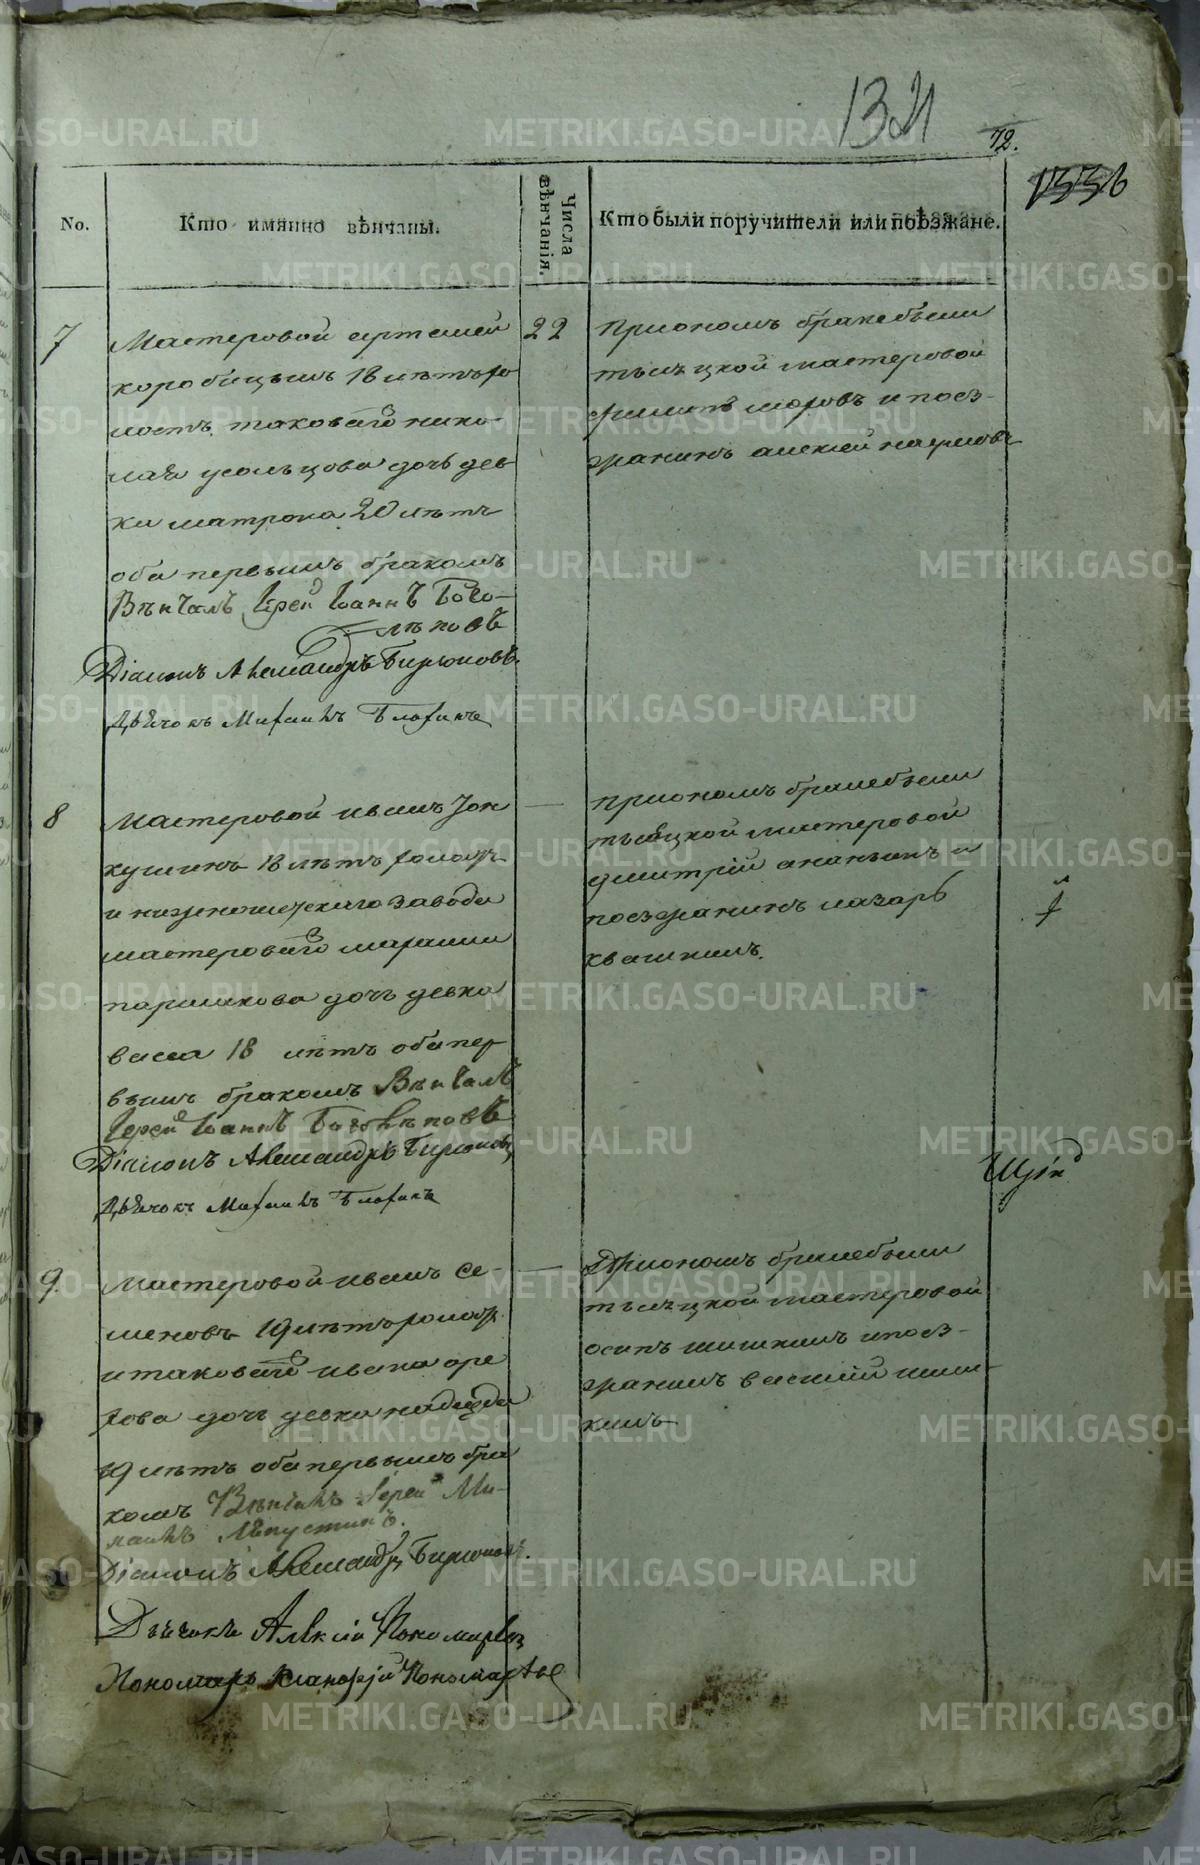 134
72.
1336
No.
Кто имянно вѣнчаны.
Числа вѣнчанія.
Кто были поручители или поѣзжане.
7
Мастеровой артемей
коробицынъ 18 лѣтъ хо
лостъ таковаго нико-
лая усольцова дочь дев-
ка матрона 20 лѣтъ
оба первымъ бракомъ
Вѣнчалъ Іерей Іоаннъ Бого-
лѣповъ
Діаконъ Александръ Бирюковъ.
Дьячокъ Михаилъ
22
При ономъ браке были
тысяцкой мастеровой
филипъ и поез-
жанинъ алексей наумовъ
8
Мастеровой иванъ
18 лѣтъ холостъ
и завода
мастероваго
паршакова дочь девка
васса 18 лѣтъ оба пер-
вымъ бракомъ Вѣнчалъ
Іерей Іоаннъ Боголѣповъ
Діаконъ Александръ Бирюковъ
Дьячокъ Михаилъ
При ономъ браке были
тысяцкой мастеровой
дмитрій ананьинъ и
поезжанинъ лазарь
квашнинъ.
9
Мастеровой иванъ се-
меновъ 19 лѣтъ холостъ
и таковаго ивана оре
хова дочь девка надежда
19 лѣтъ оба первымъ бра
комъ Вѣнчалъ Іерей Ми-
хаилъ
Діаконъ Александръ Бирюковъ.
Дьячокъ Алексій Пономаревъ
Пономарь Пономаревъ
При ономъ браке были
тысяцкой мастеровой
осипъ шишкинъ и поез-
жанинъ василій шиш-
кинъ
METRIKI.GASO-URAL.RU